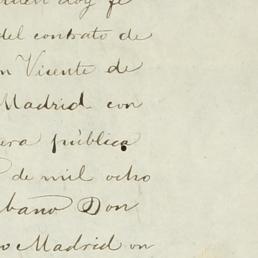 doy fe
del contrato de
n Vicente de
Madrid con
era pública
de mil ocho
bano Don
o Madrid en